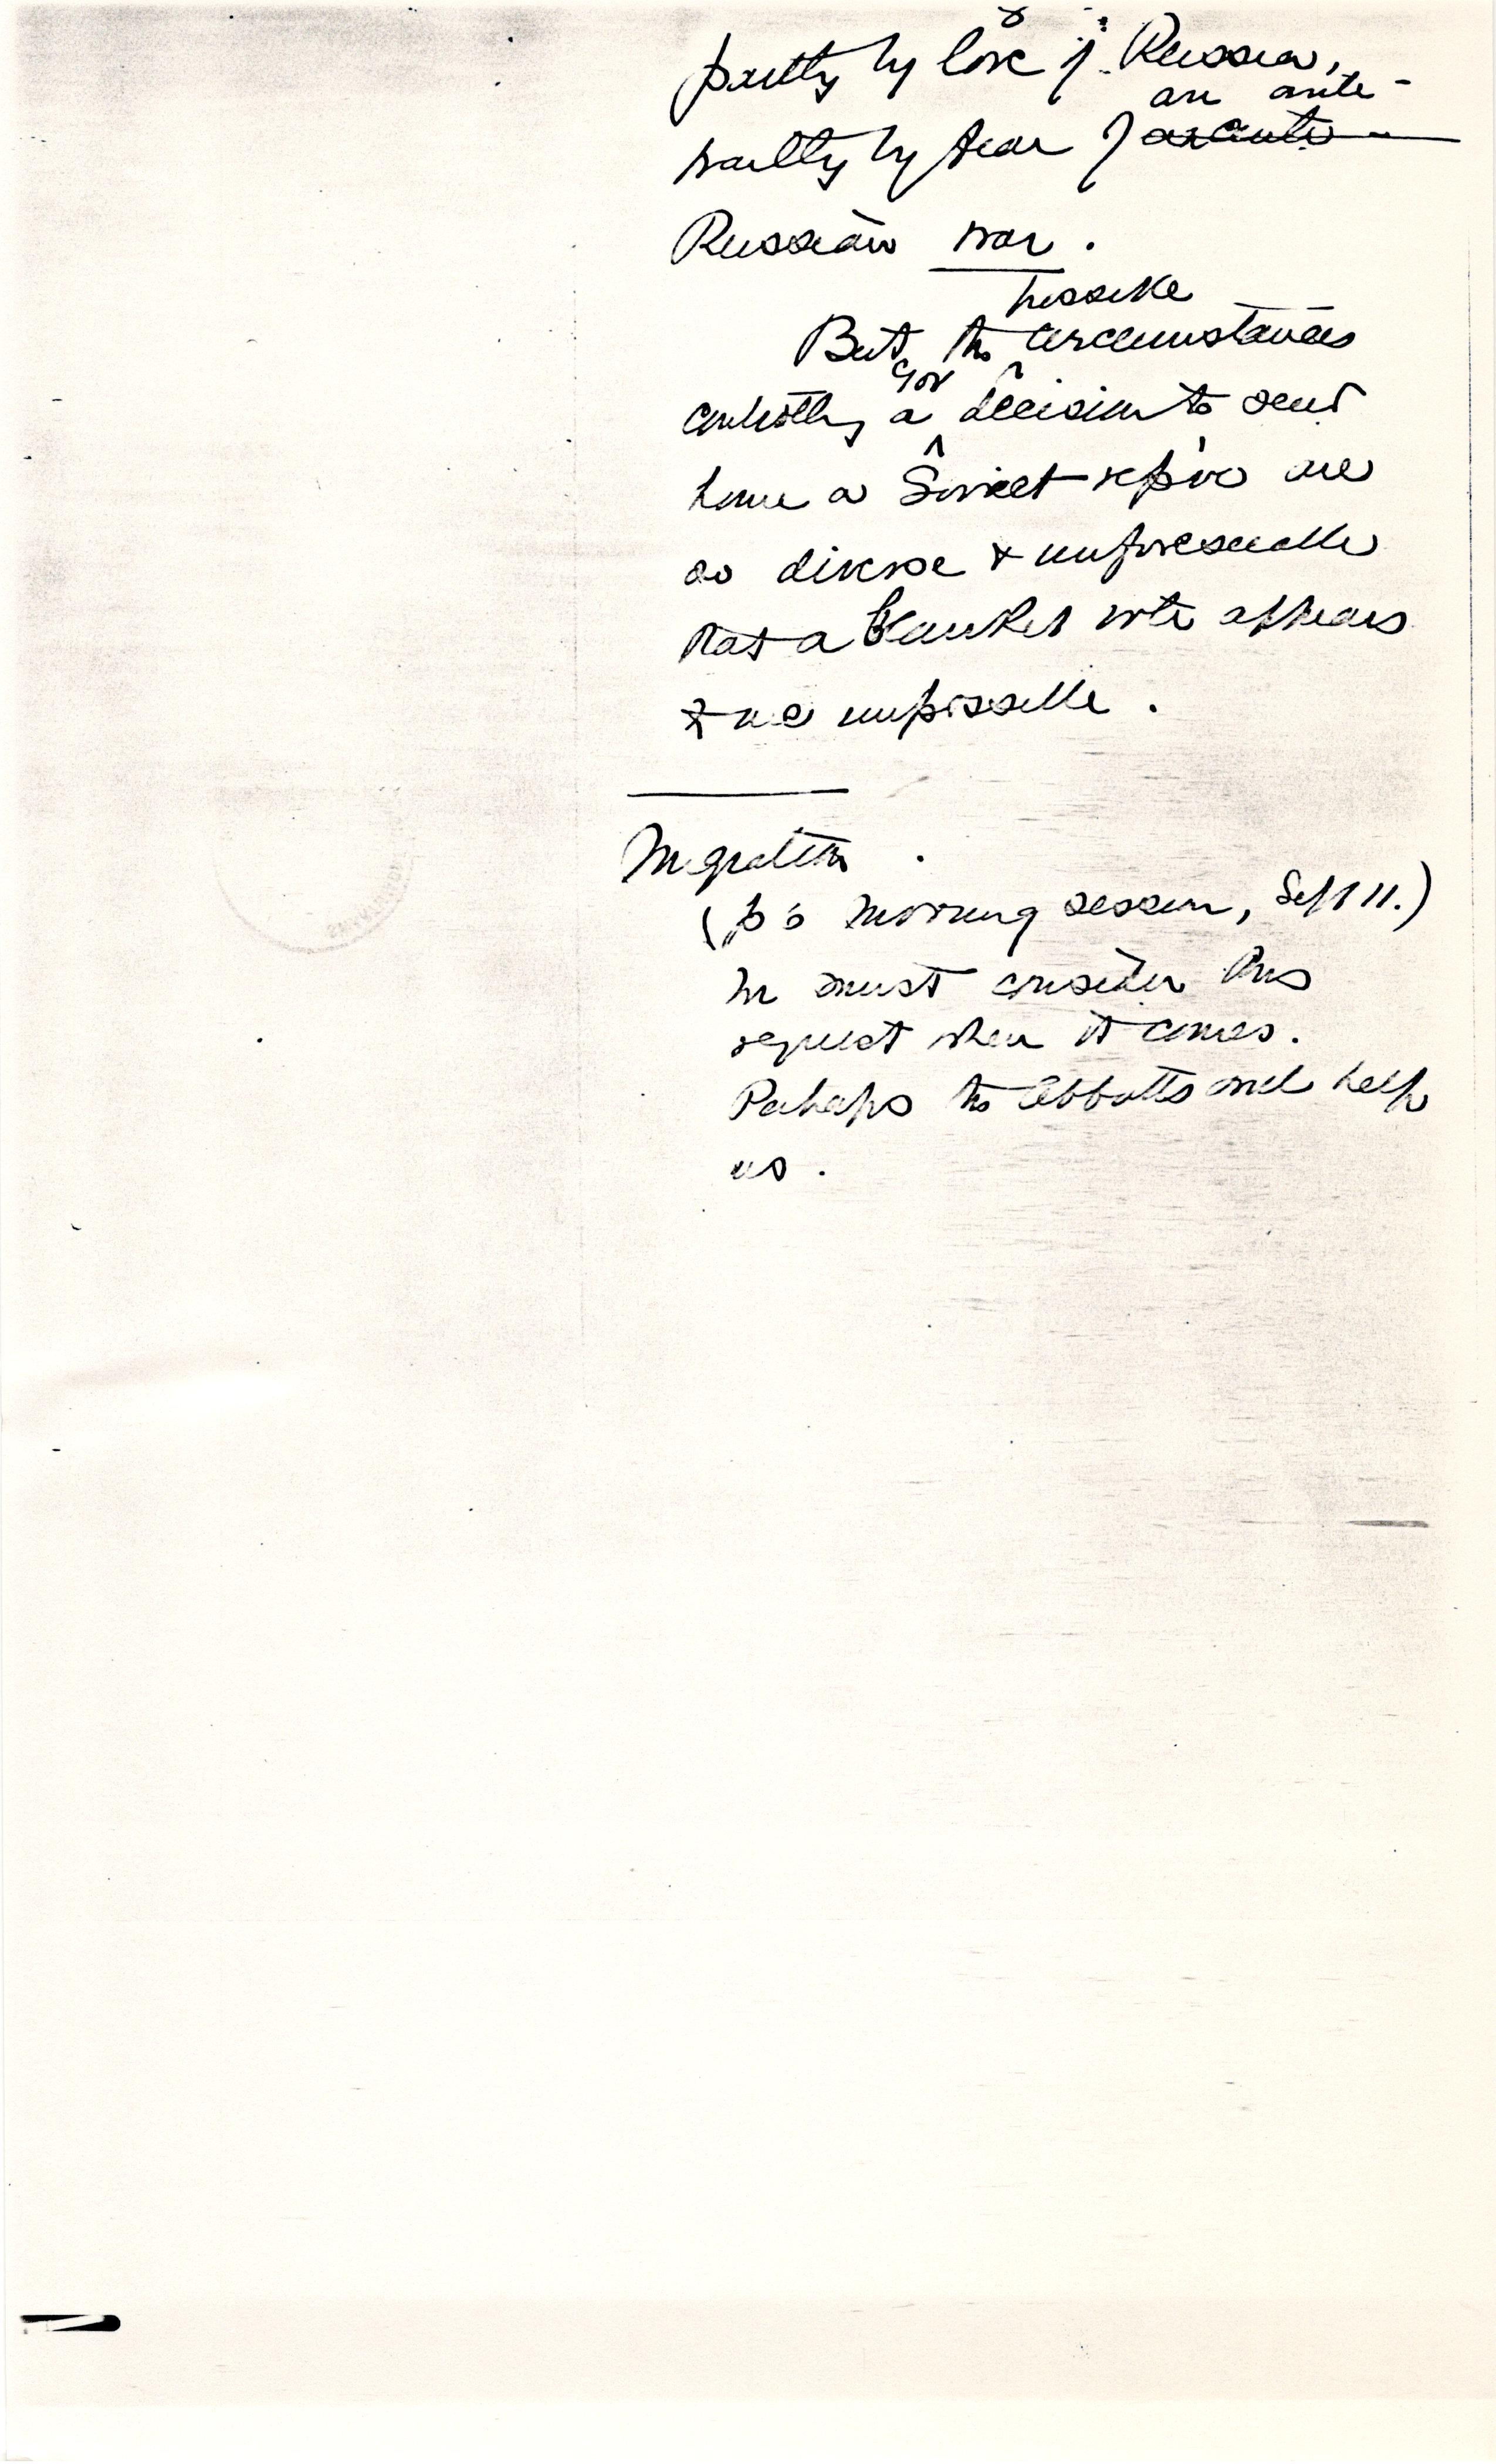 partly by love of Russia,
an anti-
partly by fear of
Russian war.
possible
But, the circumstances
gov
controlling a decision to send
home a Soviet rep've are
so diverse & unforeseeable
that a blanket vote appears
to me impossible.
Migration.
(p 6 morning session, Sept 11.)
We must consider this
request when it comes.
Perhaps the Abbotts will help
us.